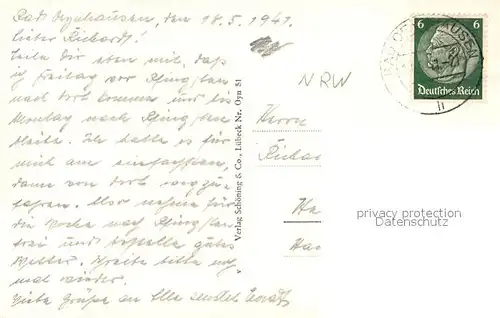 Bad Oeynhausen, den 18.5.1941.
Lieber Richard!
Teile Dir eben mit, daß
ich Freitag vor Pfingsten
nach dort komme und bis
Montag nach Pfingsten
bleibe. Ich halte es für
mich am einfachsten,
dann von dort wegzu-
fahren. Also nehme für
die Woche nach Pfingsten
frei und bestelle gutes
Wetter. Schreibe bitte
mal wieder.
Viele Grüße an Alle sendet
v Verlag Schöning & Co., Lübeck Nr. Oyn 51
NRW
Herrn
6 6
Deutsches Reich
BAD OE HAUSEN
h
privacy protection
Datenschutz